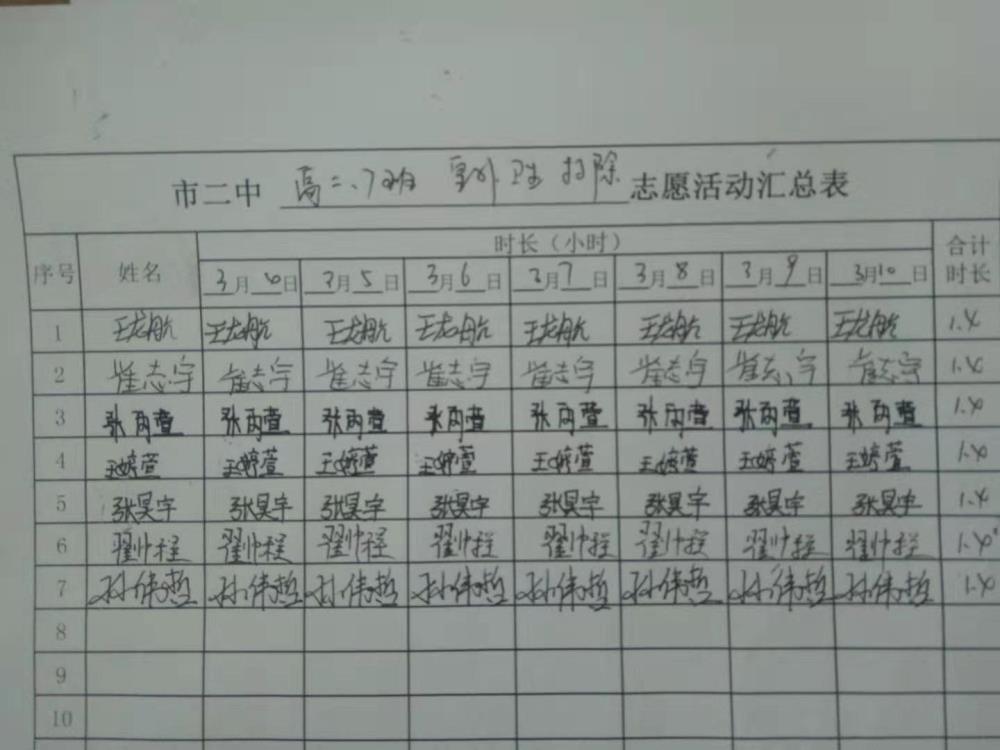 市二中 高二.7班 室外卫生扫除 志愿活动汇总表
序号 姓名 时长（小时） 合计时长
3月4日 3月5日 3月6日 3月7日 3月8日 3月9日 3月10日
1 王龙航 王龙航 王龙航 王龙航 王龙航 王龙航 王龙航 王龙航 1.4
2 崔志宇 崔志宇 崔志宇 崔志宇 崔志宇 崔志宇 崔志宇 崔志宇 1.4
3 张雨萱 张雨萱 张雨萱 张雨萱 张雨萱 张雨萱 张雨萱 张雨萱 1.4
4 王婷萱 王婷萱 王婷萱 王婷萱 王婷萱 王婷萱 王婷萱 王婷萱 1.4
5 张昊宇 张昊宇 张昊宇 张昊宇 张昊宇 张昊宇 张昊宇 张昊宇 1.4
6 翟帅程 翟帅程 翟帅程 翟帅程 翟帅程 翟帅程 翟帅程 翟帅程 1.4
7 孙伟哲 孙伟哲 孙伟哲 孙伟哲 孙伟哲 孙伟哲 孙伟哲 孙伟哲 1.4
8
9
10